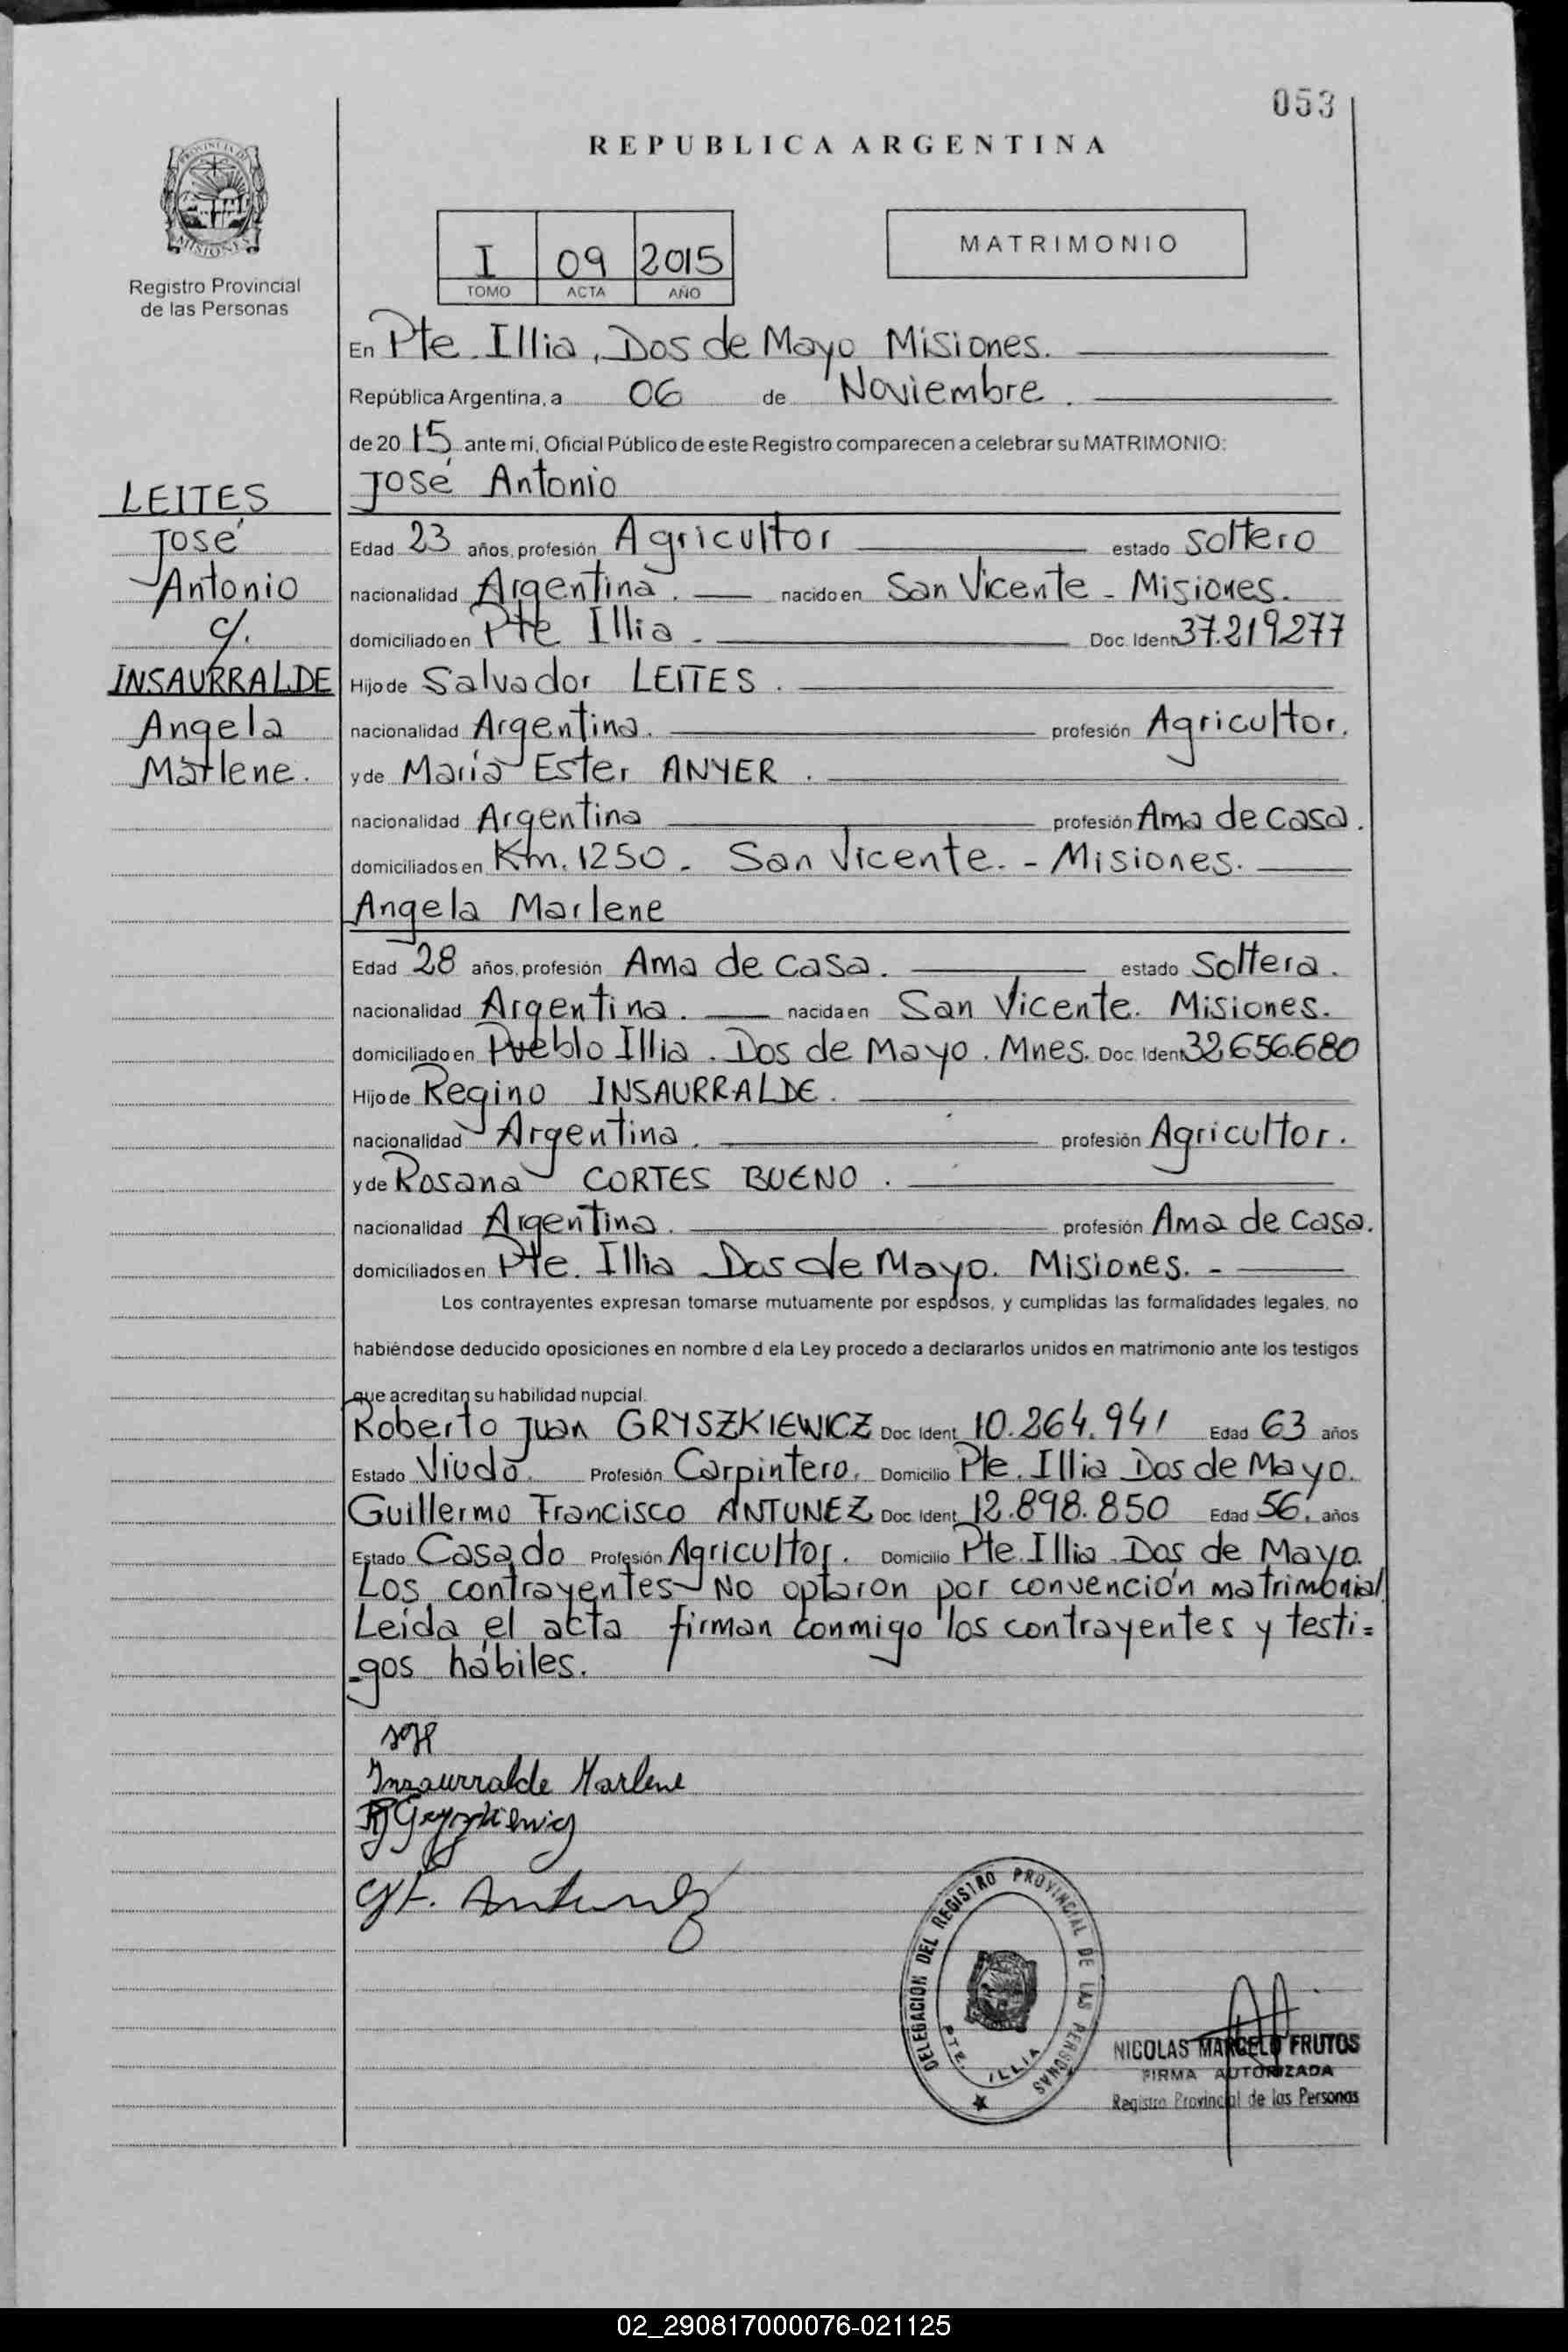 053
REPUBLICA ARGENTINA
PROVINCIA DE
MISIONES
Registro Provincial
de las Personas
I 09 2015
TOMO ACTA AÑO
MATRIMONIO
En Pte. Illia, Dos de Mayo Misiones.
República Argentina, a 06 de Noviembre.
de 20 15 ante mi, Oficial Público de este Registro comparecen a celebrar su MATRIMONIO:
LEITES
José
Antonio
c/.
INSAURRALDE
Angela
Marlene.
José Antonio
Edad 23 años, profesión Agricultor estado Soltero
nacionalidad Argentina. nacido en San Vicente - Misiones.
domiciliado en Pte Illia. Doc. Ident 37.219277
Hijo de Salvador LEITES.
nacionalidad Argentina. profesión Agricultor.
y de María Ester ANYER.
nacionalidad Argentina profesión Ama de Casa.
domiciliados en Km. 1250. San Vicente. - Misiones.
Angela Marlene
Edad 28 años, profesión Ama de Casa. estado Soltera.
nacionalidad Argentina. nacida en San Vicente. Misiones.
domiciliado en Pueblo Illia. Dos de Mayo. Mnes. Doc. Ident 32656.680
Hijo de Regino INSAURRALDE.
nacionalidad Argentina. profesión Agricultor.
y de Rosana CORTES BUENO.
nacionalidad Argentina. profesión Ama de Casa.
domiciliados en Pte. Illia Dos de Mayo. Misiones. -
Los contrayentes expresan tomarse mutuamente por esposos, y cumplidas las formalidades legales, no
habiéndose deducido oposiciones en nombre d ela Ley procedo a declararlos unidos en matrimonio ante los testigos
que acreditan su habilidad nupcial.
Roberto Juan GRYSZKIEWICZ Doc. Ident. 10.264.941 Edad 63 años
Estado Viudo. Profesión Carpintero. Domicilio Pte. Illia Dos de Mayo.
Guillermo Francisco ANTUNEZ Doc. Ident. 12.898.850 Edad 56. años
Estado Casado Profesión Agricultor. Domicilio Pte. Illia. Dos de Mayo.
Los contrayentes No optaron por convención matrimonial
Leída el acta firman conmigo los contrayentes y testi=
-gos hábiles.
Insaurralde Marlene
GF. Antunez
DELEGACION DEL REGISTRO PROVINCIAL DE LAS PERSONAS
PTE. ILLIA
NICOLAS MARCELO FRUTOS
FIRMA AUTORIZADA
Registro Provincial de las Personas
02_290817000076-021125